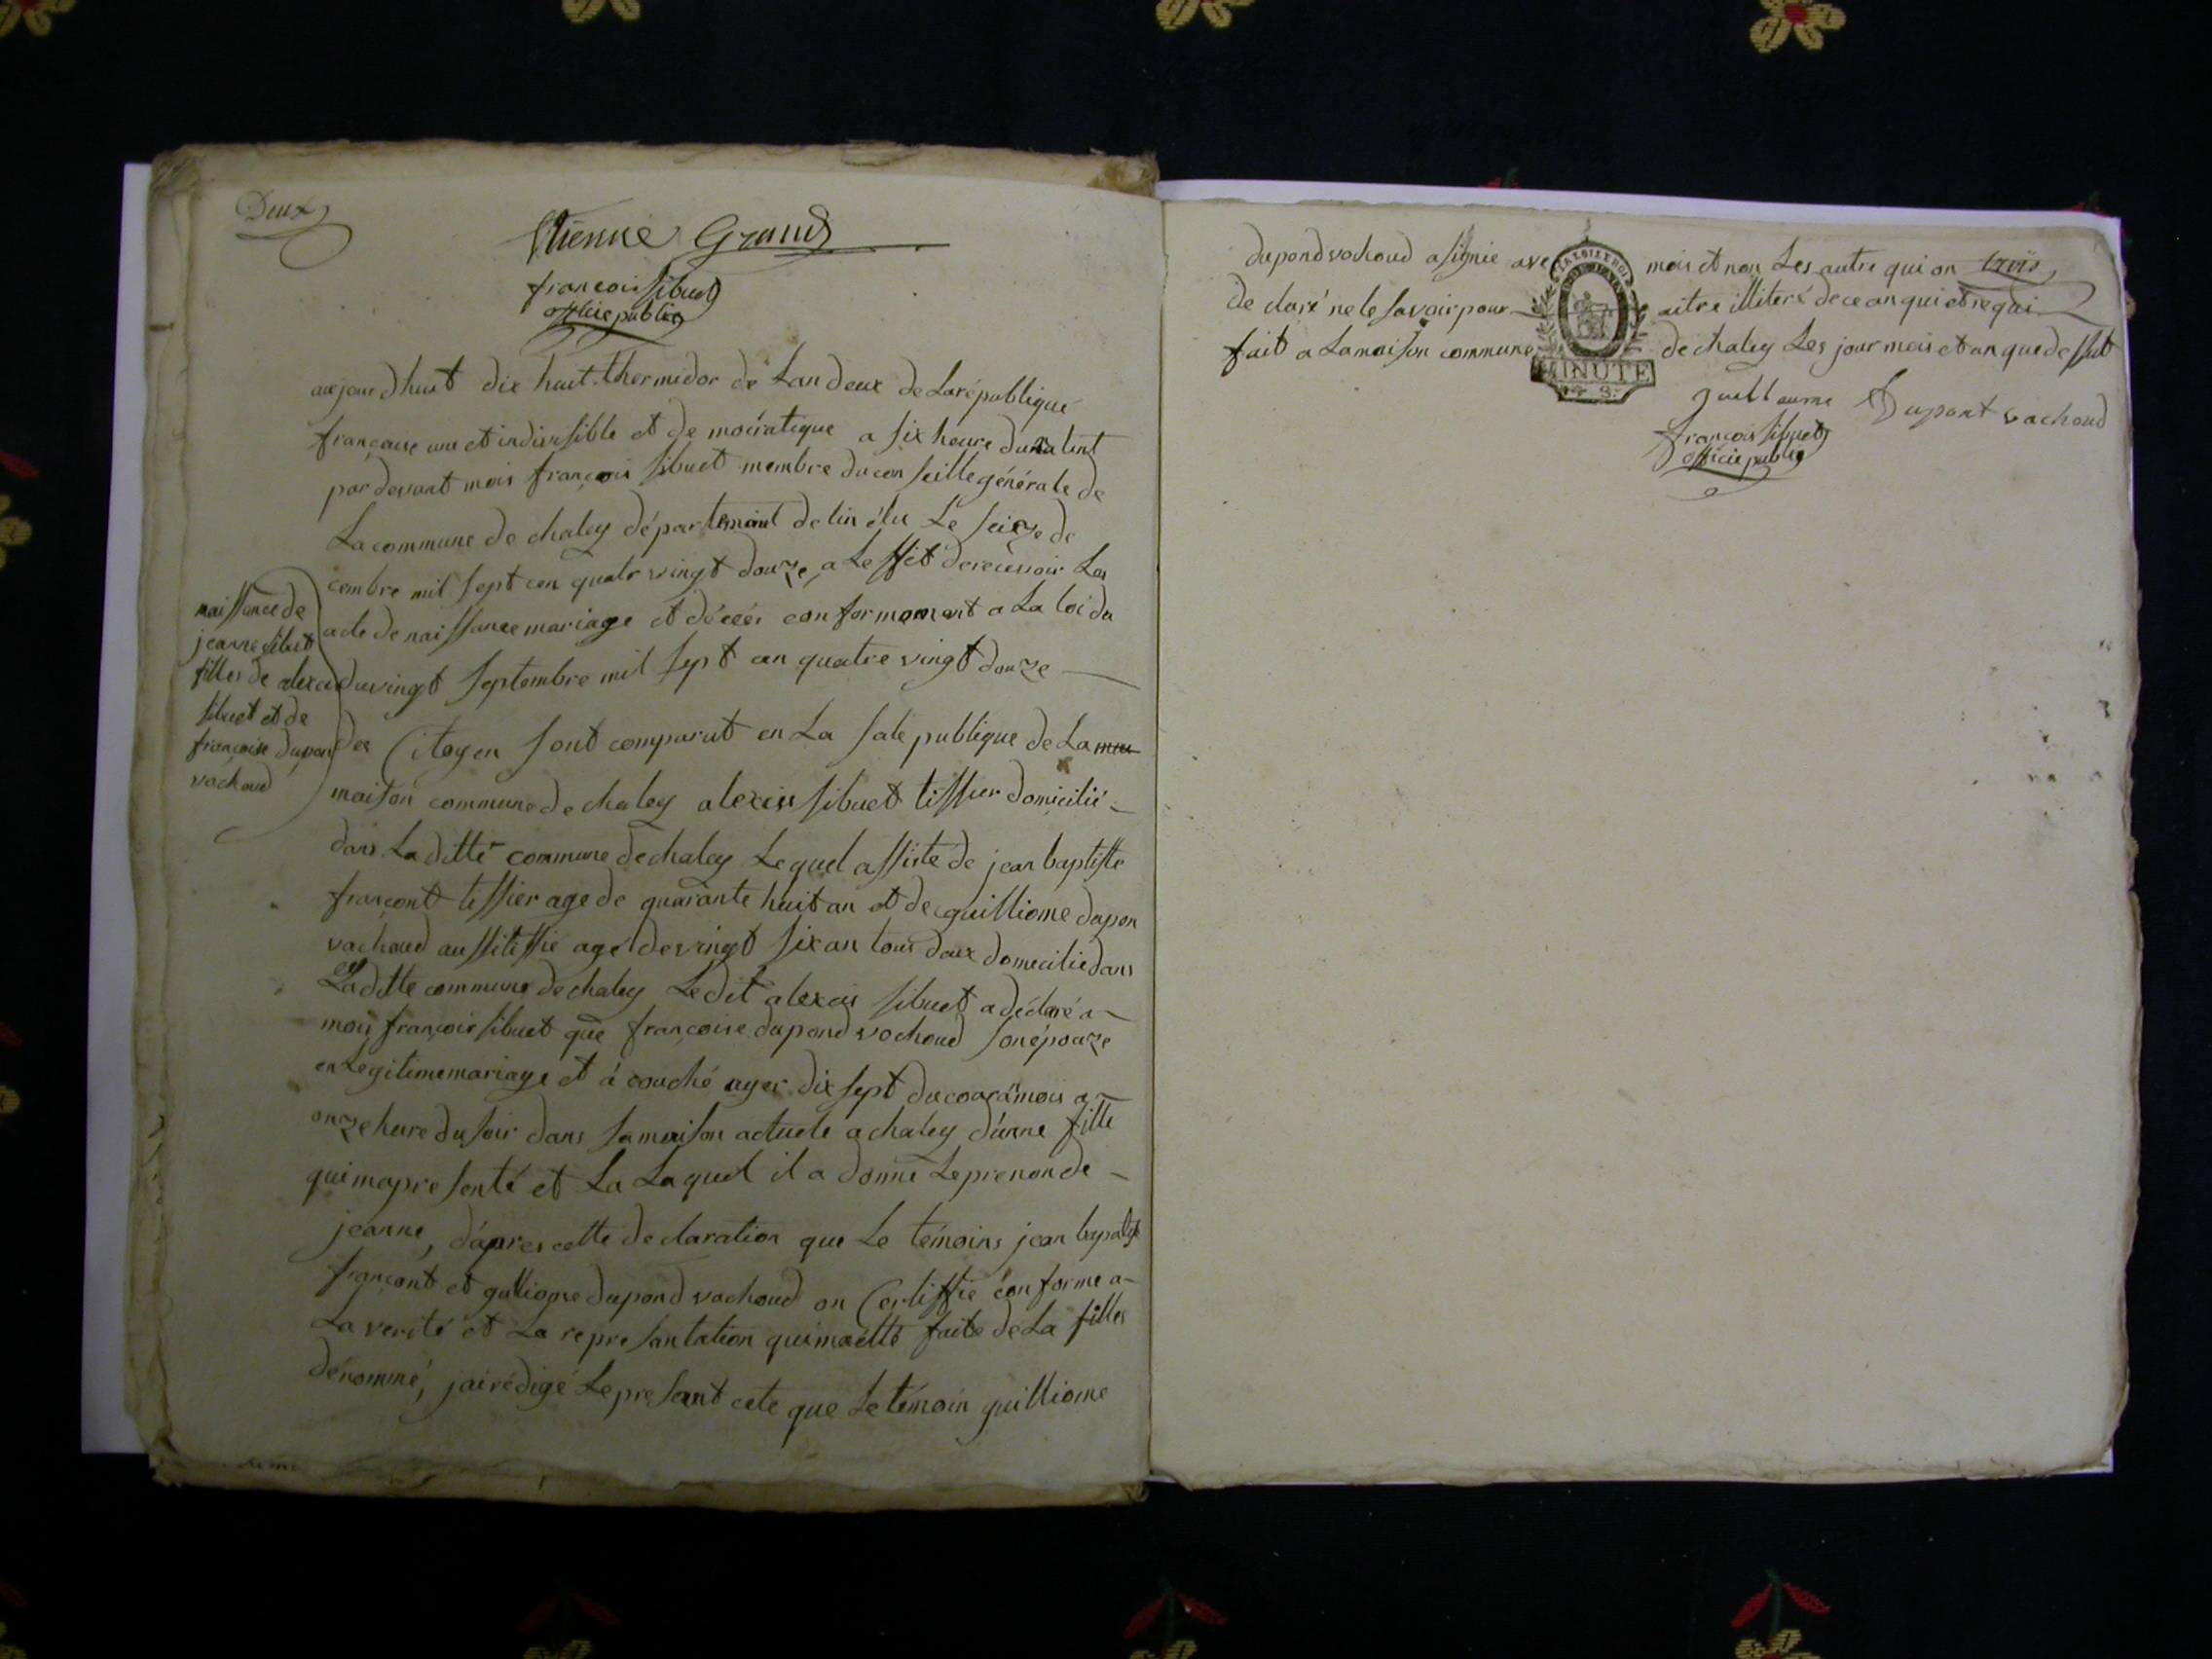 Deux
Etienne Grand
francois sibuet
officie public
aujourdhuit dix huit thermidor de Lan deux de Larépublique
française une et indivisible et de mocratique a six heure dumatint
par devant mois françois sibuet membre du conseille générale de
La commune de chaley département de lin élu Le seize de
cembre mil sept cen quatr vingt douze, a Leffet derecuvoir Les
acte de naissance mariage et décéés conformement a La loi du
duvingt septembre mil sept cen quatre vingt douze
naissance de
jeanne sibuet
filles de alexis
sibuet et de
francoise dupon
vachoud
des Citoyen sont comparut en La sale publique de La
maison commune de chaley alexis sibuet tissier domicilié
dans La ditte commune de chaley Le quel assisté de jean baptiste
françont tessier age de quarante huit an et de guilliome dupon
vachoud aussi tissié agé de vingt six an tous deux domecilié dans
Ladette commune de chaley Ledit alexis sibuet a déclaré a
mois françois sibuet que francoise dupond vochoud son épouze
en Legitime mariage et á couché ayer dix sept du courá mois a
onze heure du soir dans samaison actuele a chaley d'unne fille
quimapresenté et La Laquel il a donné Leprenon de
jeanne, d'apres cette declaration que Le témoins jean bapatiste
françont et guilliome dupond vachoud on Certiffié conforme a
La verité et La represantation quimaétté faite de La filles
dénommé, jai rédigé Lepresant cete que Le témoin guilliome
dupond vochoud a signie ave mois et non Les autre qui on trois
de claré ne le savoir pour aitre illiteré de ce an qui et requi
fait a Lamaison commune de chaley Les jour mois et an que de ssut
LA LOI LE ROI
MINUTE
guillaume Dupont vachoud
françois sibuet
officie public